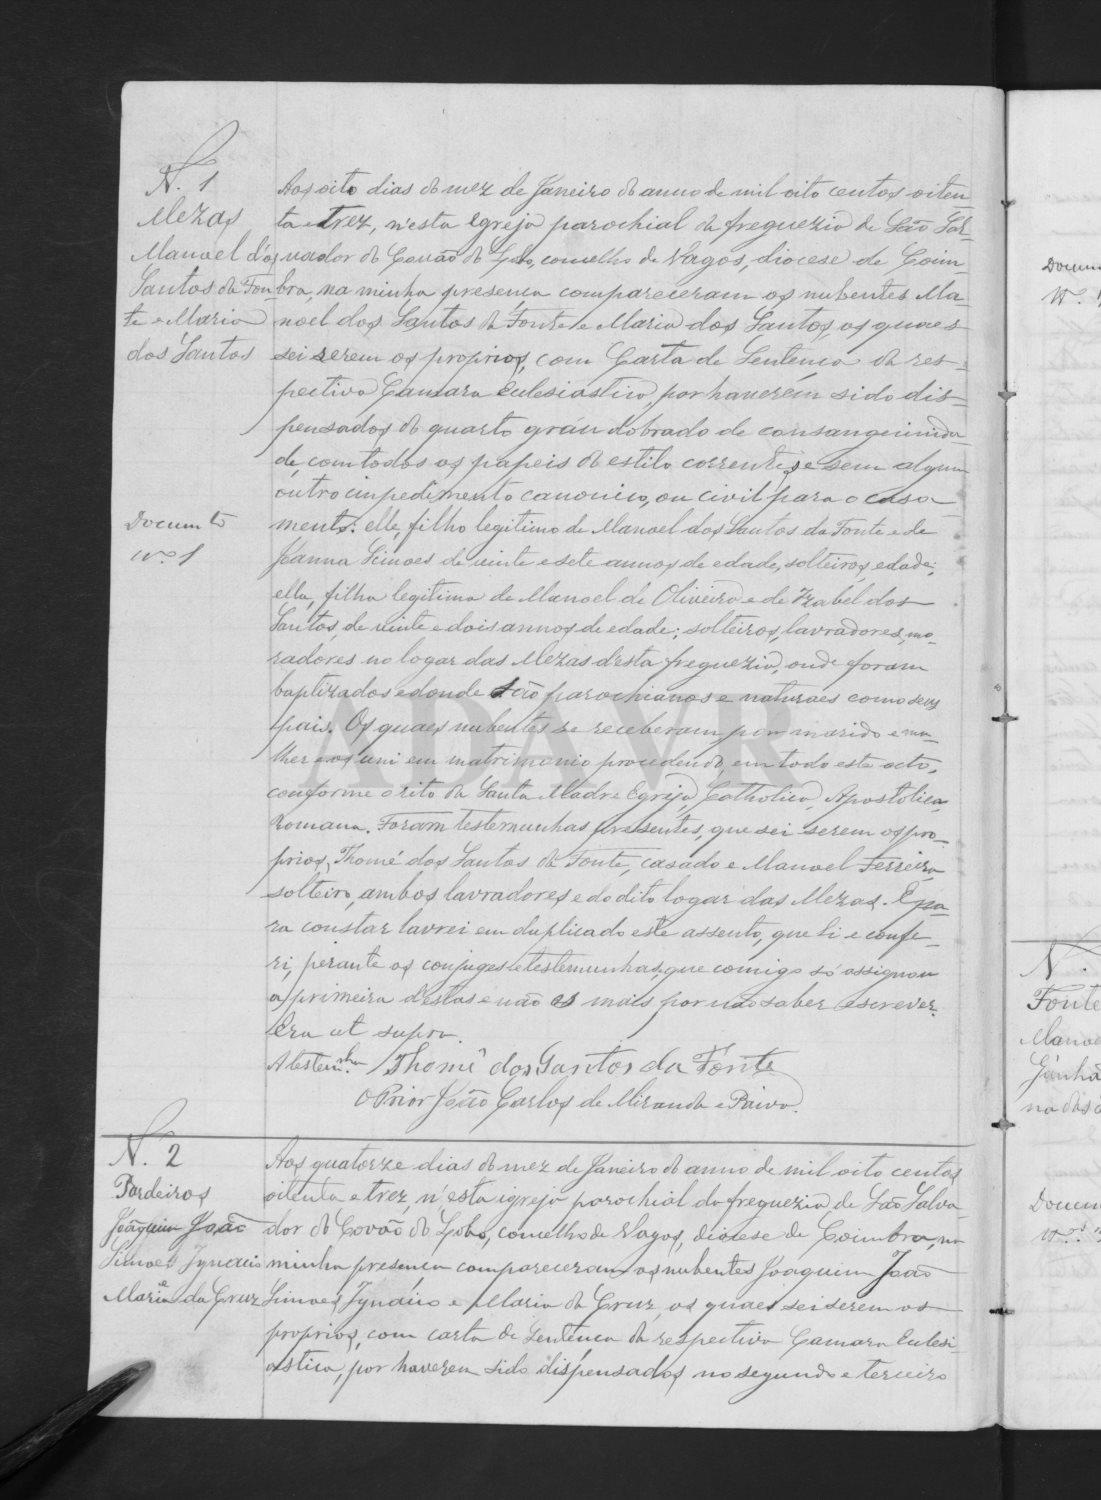 N. 1
Mezas
Manoel dos
Santos da Fon-
te e Maria
dos Santos
Aos oito dias do mez de Janeiro do anno de mil oito centos oiten-
ta e trez, n'esta egreja parochial da freguezia de São Sal-
vador do Covão do Lobo, concelho de Vagos, diocese de Coim-
bra, na minha presença compareceram os nubentes Ma-
noel dos Santos da Fonte e Maria dos Santos, os quaes
sei serem os proprios, com Carta de Sentença da res-
pectiva Camara Eclesiastica por haverem sido dis-
pensados do quarto gráu dobrado de consanguinida-
de, com todos os papeis do estilo correntes, e sem algum
outro impedimento canonico, ou civil para o casa-
mento: elle, filho legitimo de Manoel dos Santos da Fonte e de
Joanna Simoes de vinte e sete annos de edade, solteiros, edade;
ella, filha legitima de Manoel de Oliveira e de Izabel dos
Santos, de vinte e dois annos de edade; solteiros, lavradores, mo-
radores no logar das Mezas desta freguezia, onde foram
baptizados e donde são parochianos e naturaes como seus
pais. Os quaes nubentes se receberam por marido e mu-
lher e os uni em matrimonio procedendo, em todo este acto,
conforme o rito da Santa Madre Egreja Catholica Apostolica
Romana. Foram testemunhas presentes, que sei serem os pro-
prios, Thomé dos Santos da Fonte, casado e Manoel Ferreira
solteiro, ambos lavradores e do dito logar das Mezas. E pa-
ra constar lavrei em duplicado este assento, que li e confe-
ri, perante os conjuges e testemunhas, que comigo só assignou
a primeira destas e não os mais por não saber escrever.
Era ut supra.
A testemnha Thomé dos Santos da Fonte
O Prior João Carlos de Miranda e Paiva.
Documto
nº 1
N. 2
Pardeiros
Joaquim João
Simoes Ignacio
e
Maria da Cruz
Aos quatorze dias do mez de Janeiro do anno de mil oito centos
oitenta e trez, n'esta igreja parochial da freguezia de São Salva-
dor do Covão do Lobo, concelho de Vagos, diocese de Coimbra, na
minha presença compareceram os nubentes Joaquim João
Simoes Ignacio e Maria da Cruz, os quaes sei serem os
proprios, com carta de Sentença da respectiva Camara Eclesi-
astica, por haverem sido dispensados no segundo e terceiro
Docum
Nº.
N.
Fonte
Manoe
Docum
ADAVR